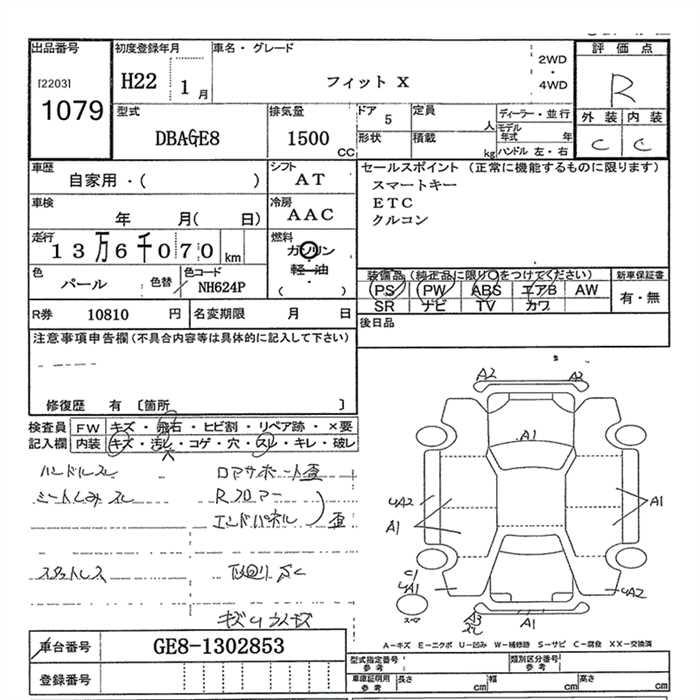 出品番号 初度登録年月 車名・グレード 評価点
[2203] H22 1月 フィット X 2WD・4WD R
1079 型式 排気量 ドア 定員 ディーラー・並行 外装 内装
DBAGE8 1500 CC 5 人 モデル年式 年 C C
形状 積載 kg ハンドル 左・右
車歴 シフト セールスポイント (正常に機能するものに限ります)
自家用・( ) AT スマートキー
車検 冷房 ETC
年 月( 日) AAC クルコン
走行 燃料
13万6千070 km ガソリン
軽・油
( )
色 色替 色コード 装備品(純正品に限り○をつけてください) 新車保証書
パール NH624P PS PW ABS エアB AW 有・無
SR ナビ TV カワ
R券 10810 円 名変期限 月 日 後日品
注意事項申告欄(不具合内容等は具体的に記入して下さい)
修復歴 有 〔箇所 〕
検査員 FW キズ・飛石・ヒビ割・リペア跡・×要
記入欄 内装 キズ・汚レ・コゲ・穴・スレ・キレ・破レ
ハンドルスレ ロアサポート歪
シートしみ スレ Rフロアー
エンドパネル 歪
スタットレス
A2 A2
A1
4A2 A1
A1
C1
4A1 4A2
スペア A1
車台番号 GE8-1302853
登録番号
A-キズ E-エクボ U-凹み W-補修跡 S-サビ C-腐食 XX-交換済
型式指定番号 参考 類別区分番号 参考
車庫証明用 参考 長さ cm 幅 cm 高さ cm